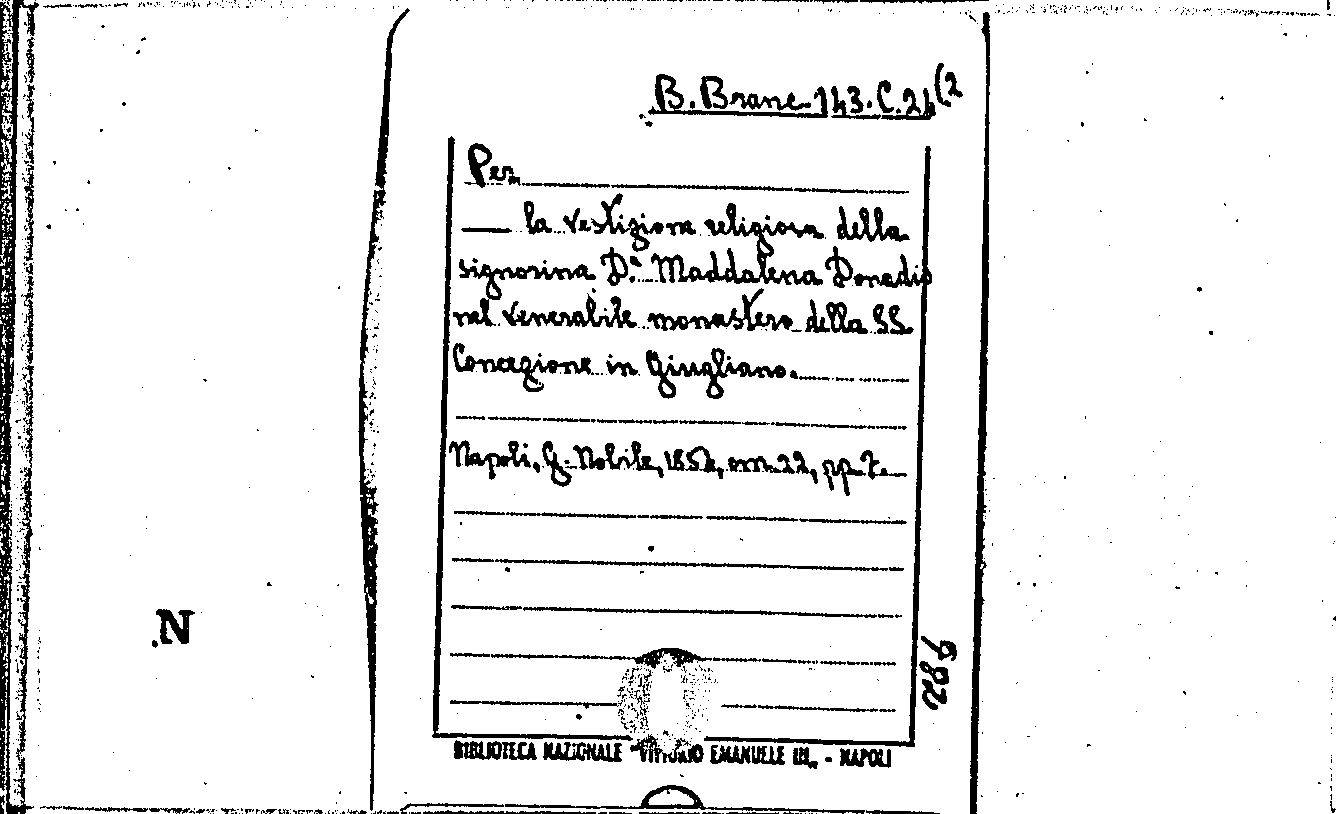 B. Branc. 143. C. 24(2
Per
— la vestizione religiosa della
signorina D.ª Maddalena Donadio
nel venerabile monastero della SS.
Concezione in Giugliano.
Napoli, G. Nobile, cm. 22, pp. 7.
BIBLIOTECA NAZIONALE "VITTORIO EMANUELE III„ - NAPOLI
N